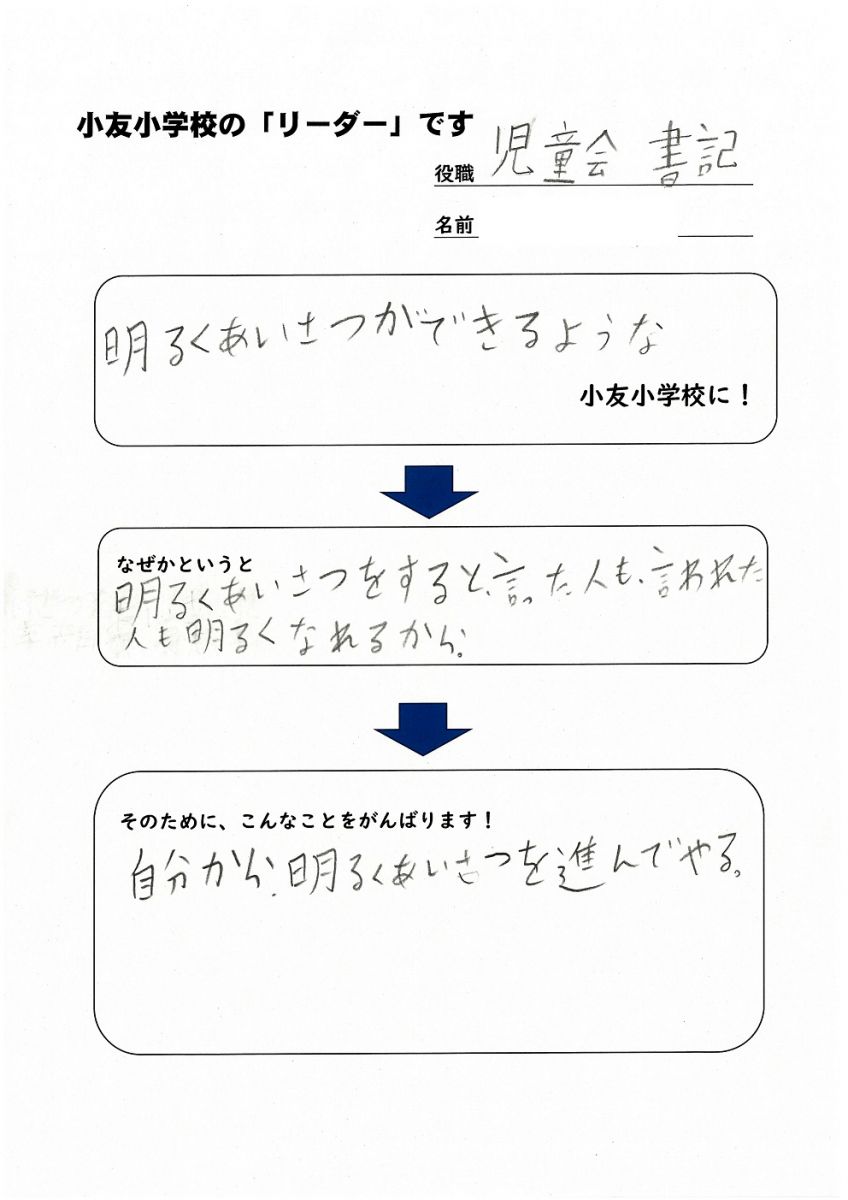 小友小学校の「リーダー」です
役職 児童会 書記
名前
明るくあいさつができるような
小友小学校に！
なぜかというと
明るくあいさつをすると、言った人も、言われた
人も明るくなれるから。
そのために、こんなことをがんばります！
自分から、明るくあいさつを進んでやる。